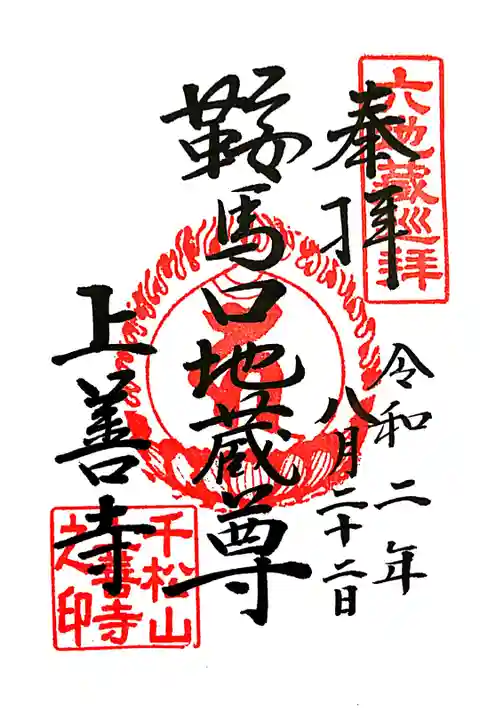 六地蔵巡拝
奉拝
令和二年
八月二十二日
鞍馬口地蔵尊
上善寺
千松山
上善寺
之印